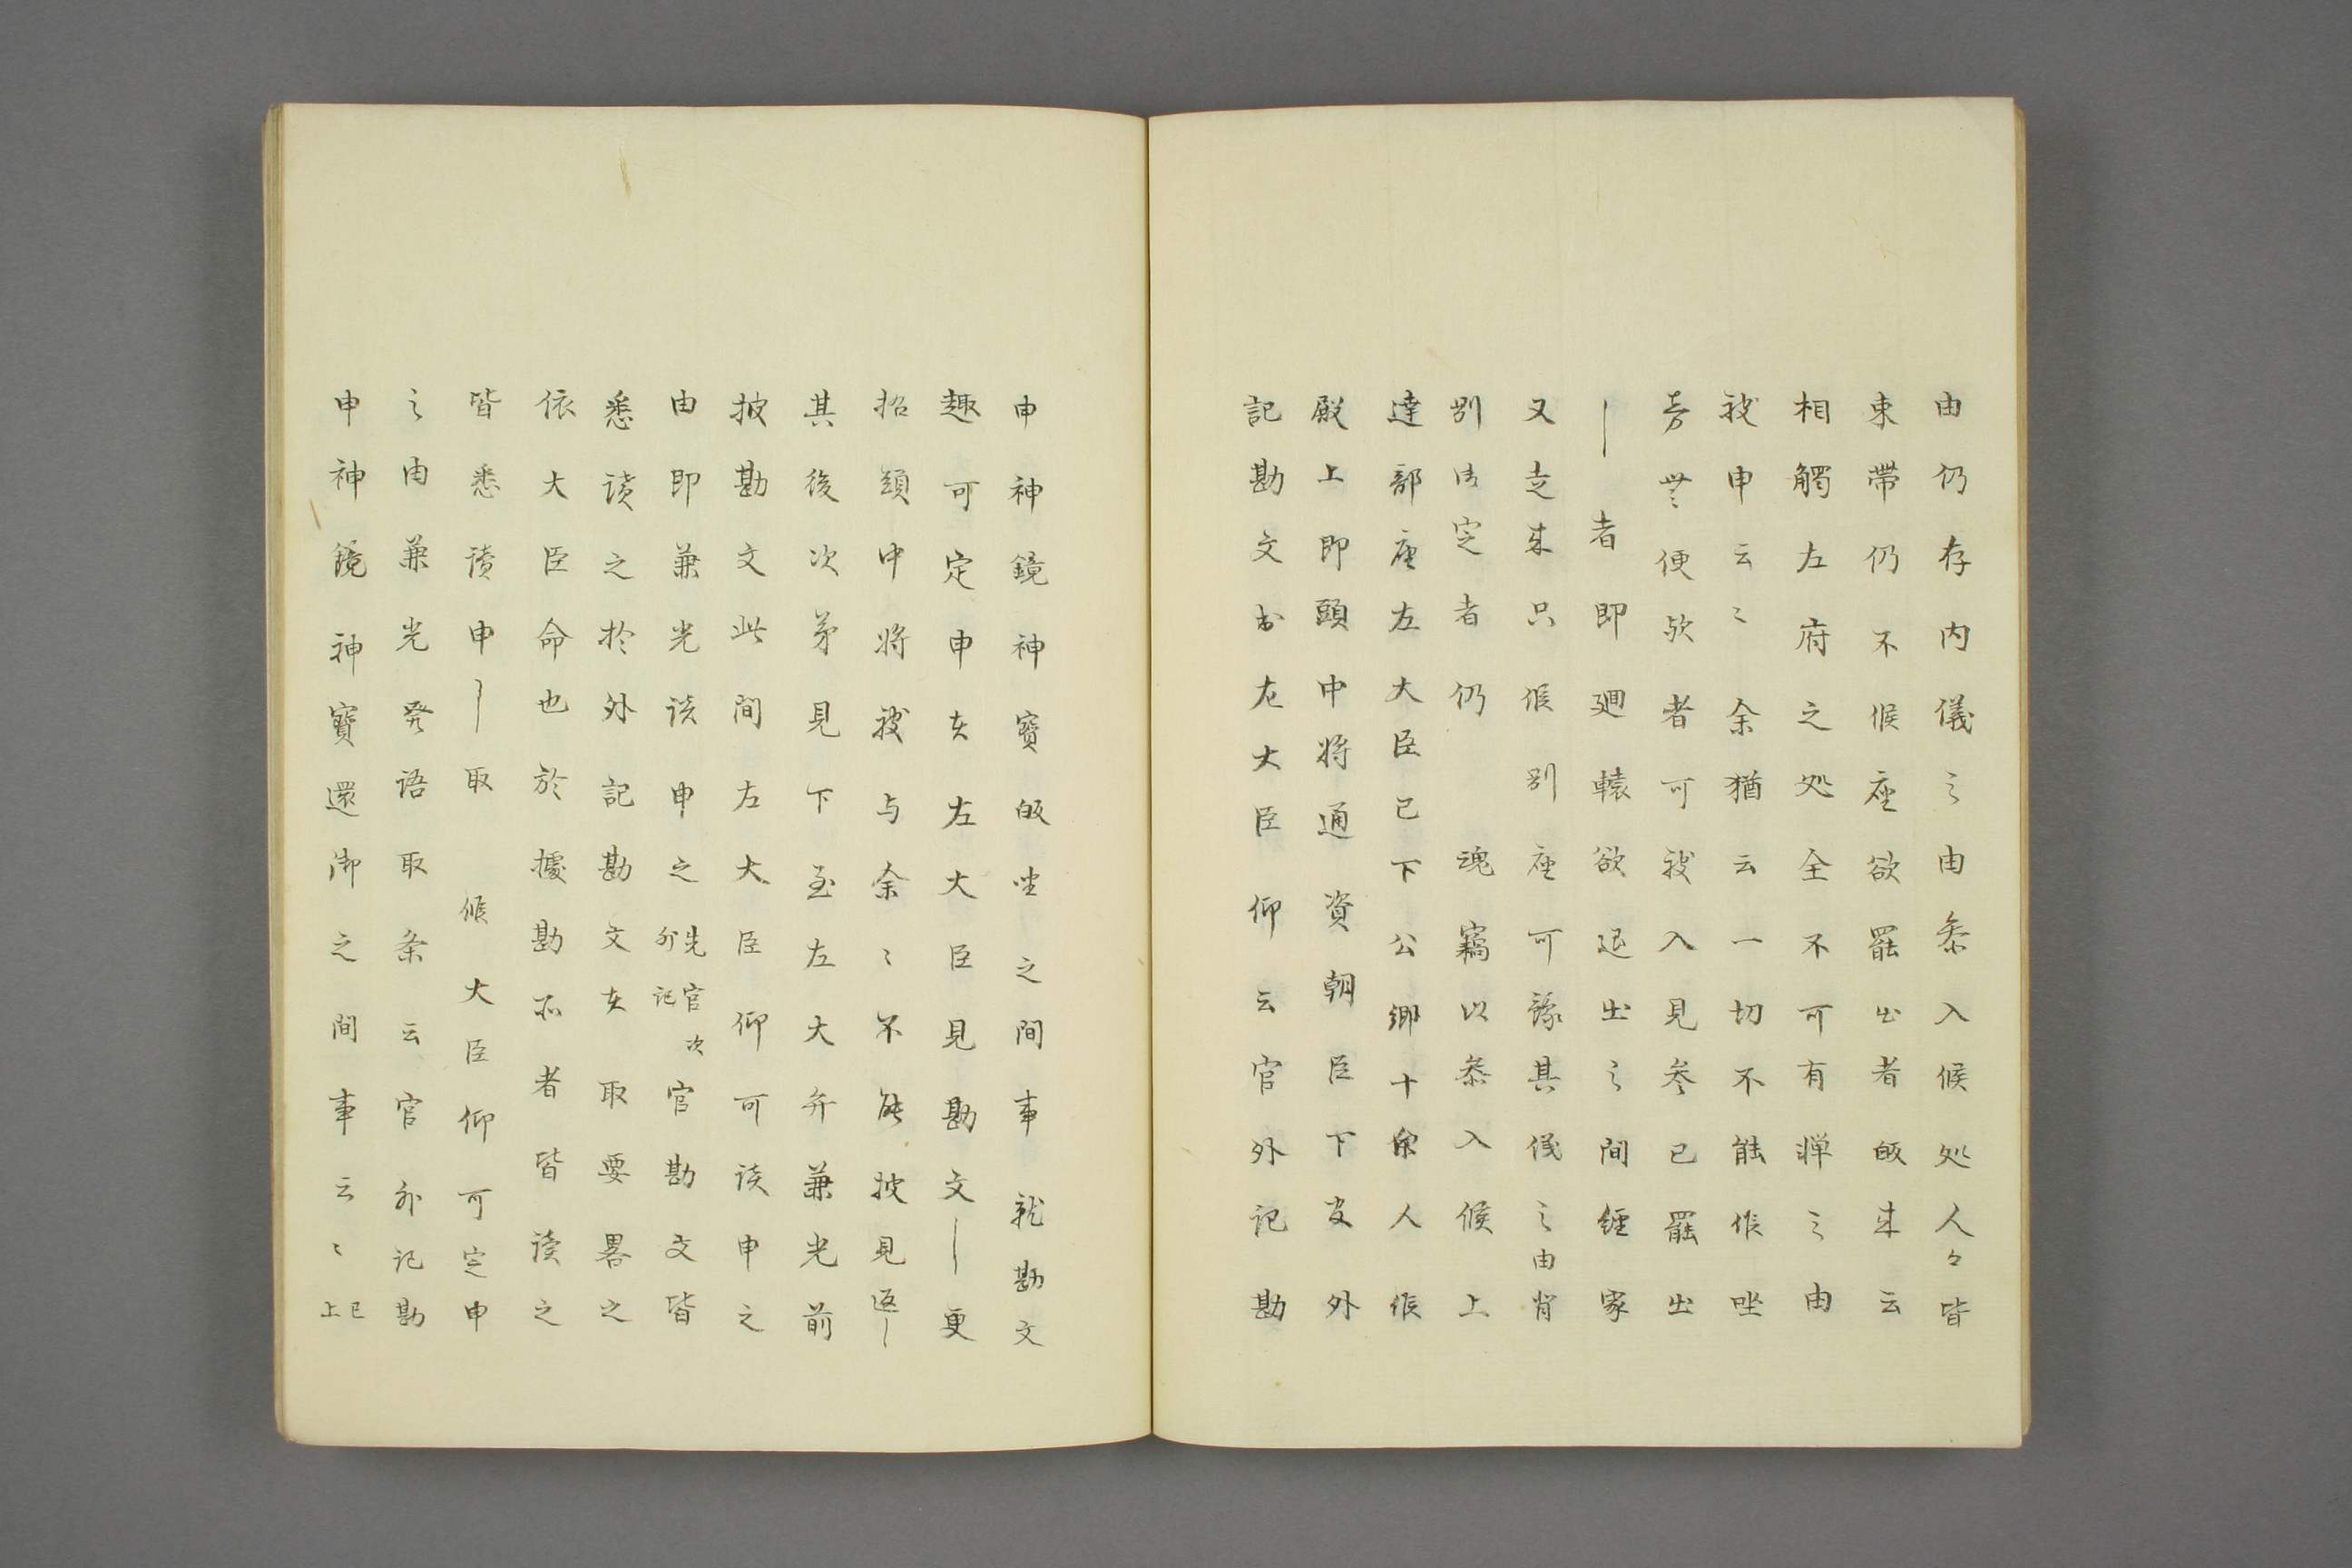 由仍存内儀之由参入候処人々皆
束帯仍不候座欲罷出者皈来云
相觸左府之処全不可有憚之由
被申云〻余猶云一切不能作唑
旁無便欤者可被入見参已罷出
｜者即廻轅欲退出之間経家
又走来只候別座可豫其儀之由背
別御定者仍　魂竊以参入候上
達部座左大臣已下公卿十余人候
殿上即頭中将通資朝臣下官外
記勘文於左大臣仰云官外記勘
申神鏡神寳皈坐之間事就勘文
趣可定申者左大臣見勘文｜更
招頭中将被与余〻不能披見返｜
其後次第見下至左大弁兼光前
披勘文此間左大臣仰可讀申之
由即兼光讀申之先官次外記官勘文皆
悉讀之於外記勘文者取要畧之
依大臣命也於據勘所者皆讀之
皆悉讀申｜取　候大臣仰可定申
之由兼光発語取条云官外記勘
申神鏡神寳還御之間事云〻已上